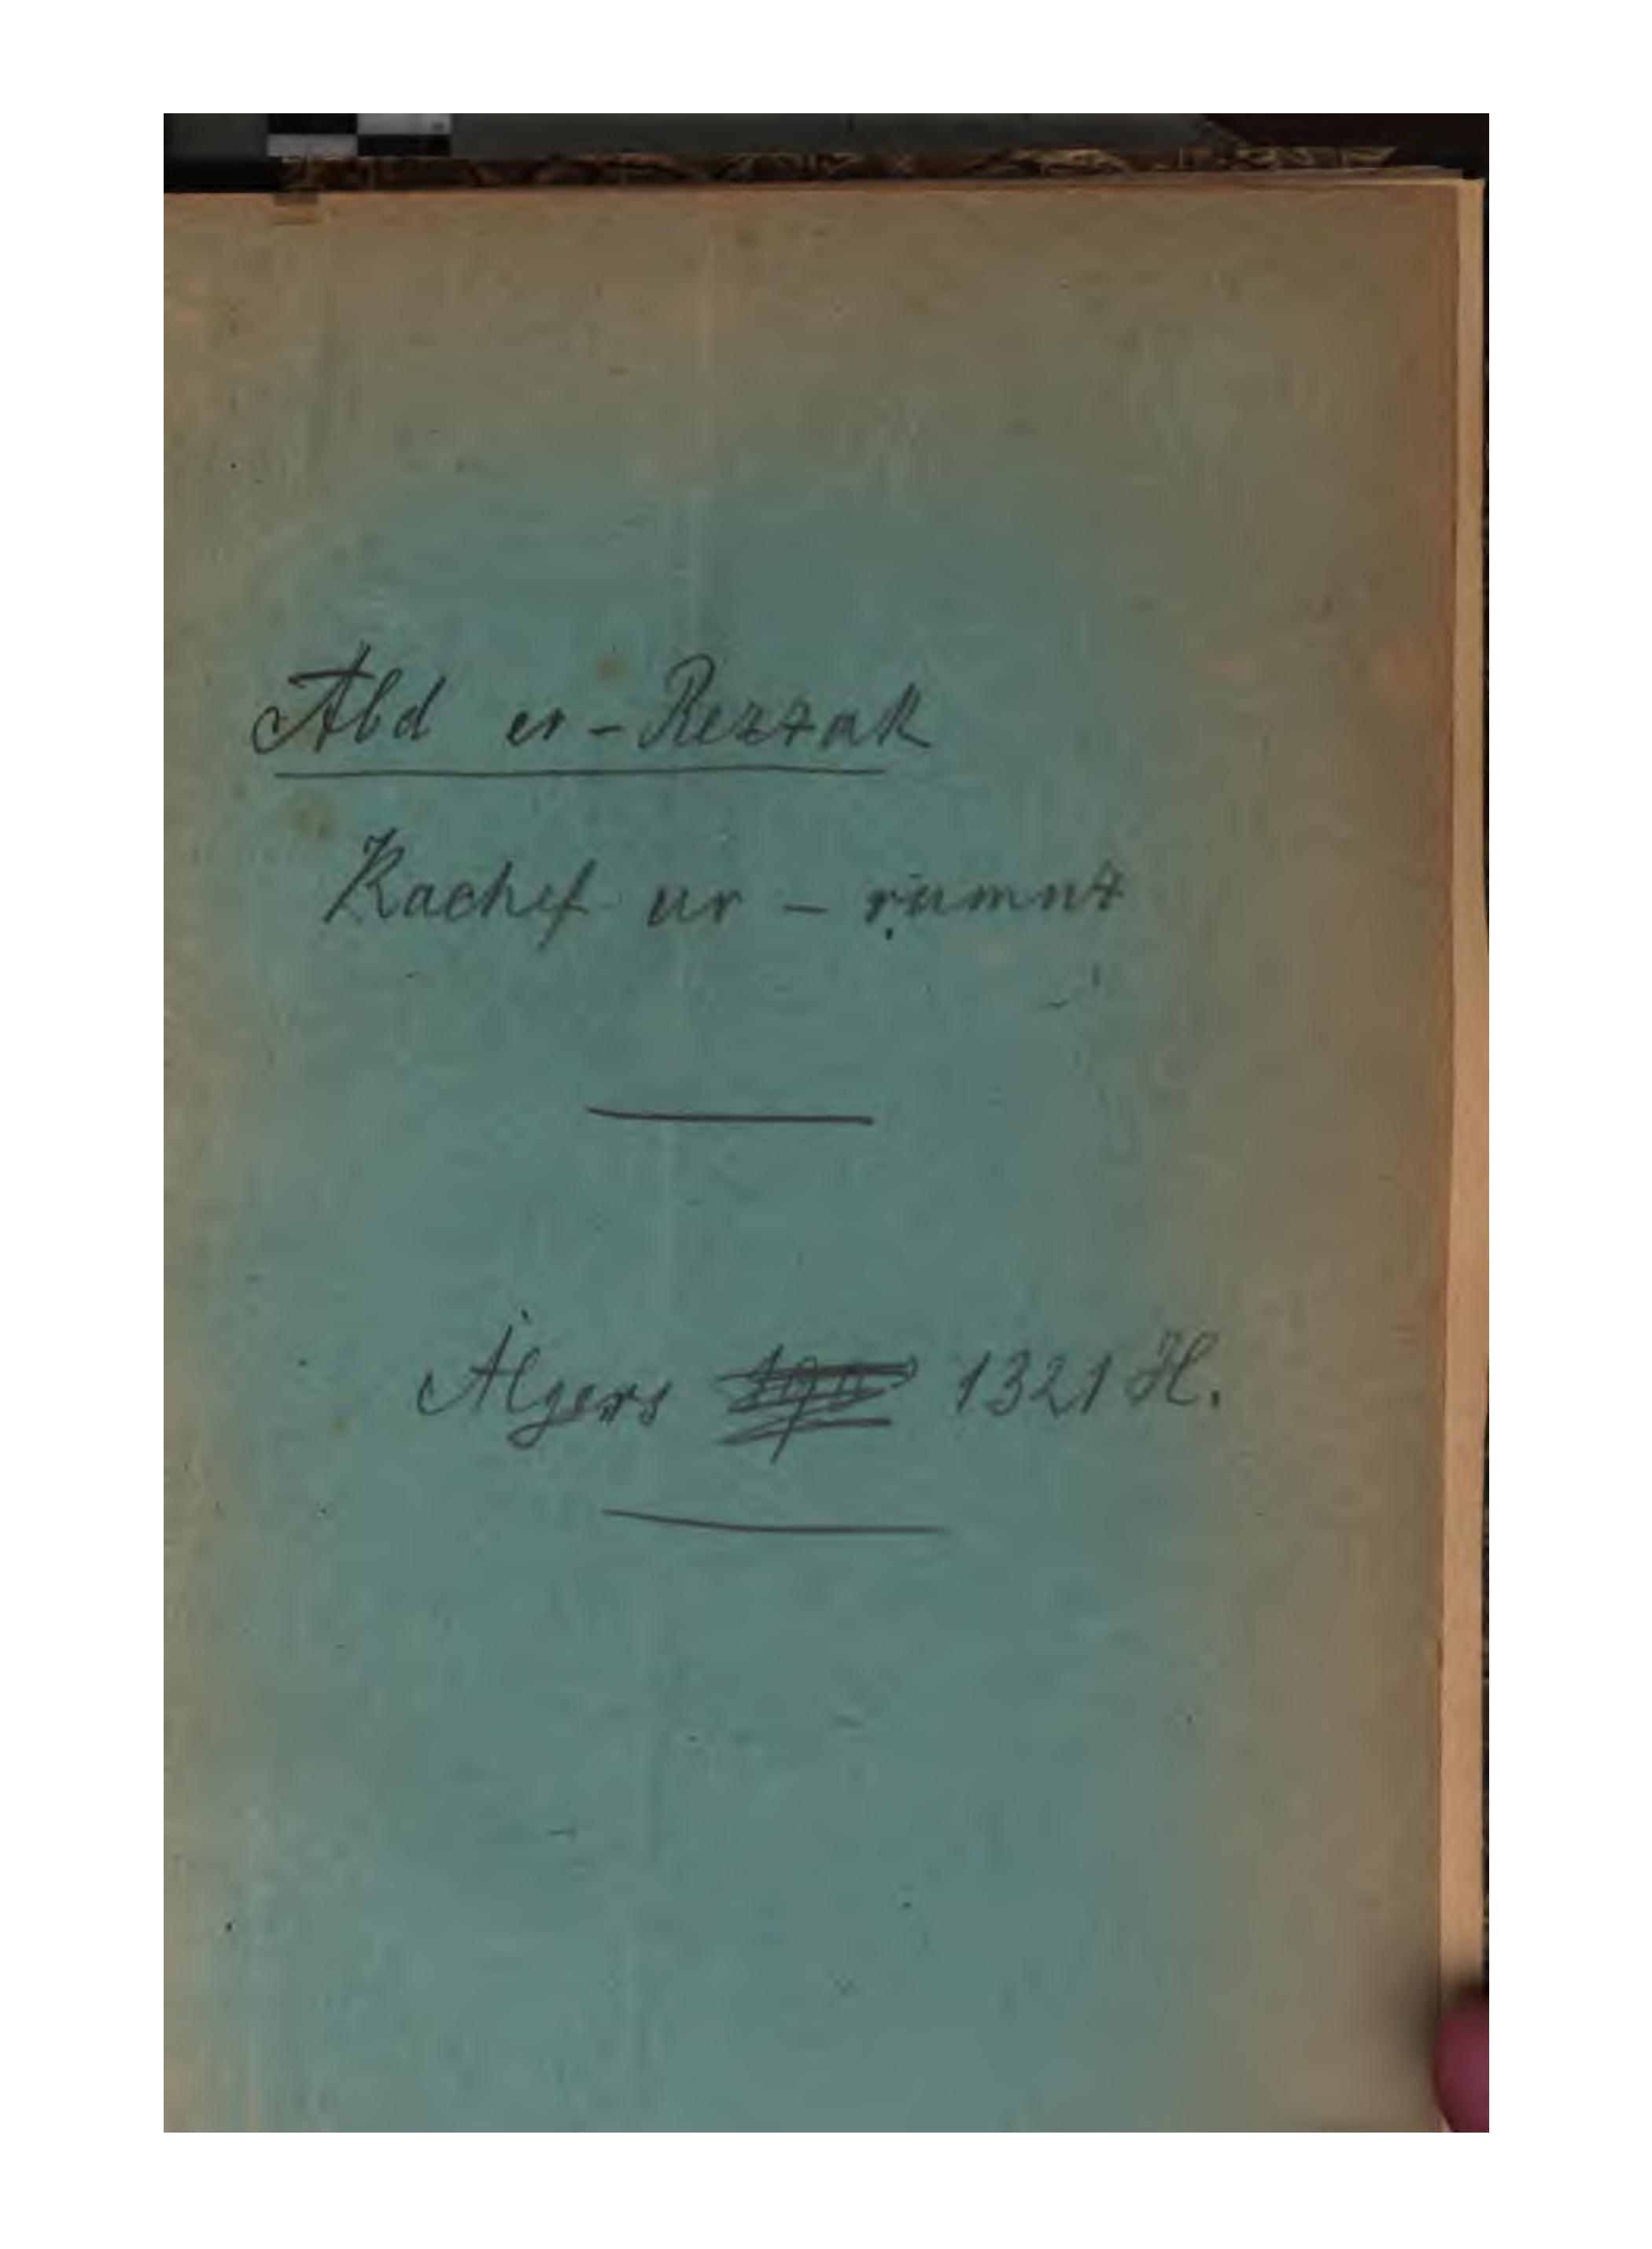 Abd er-Rezzak
Kachef ur - rumuz
Algers 1321 H.